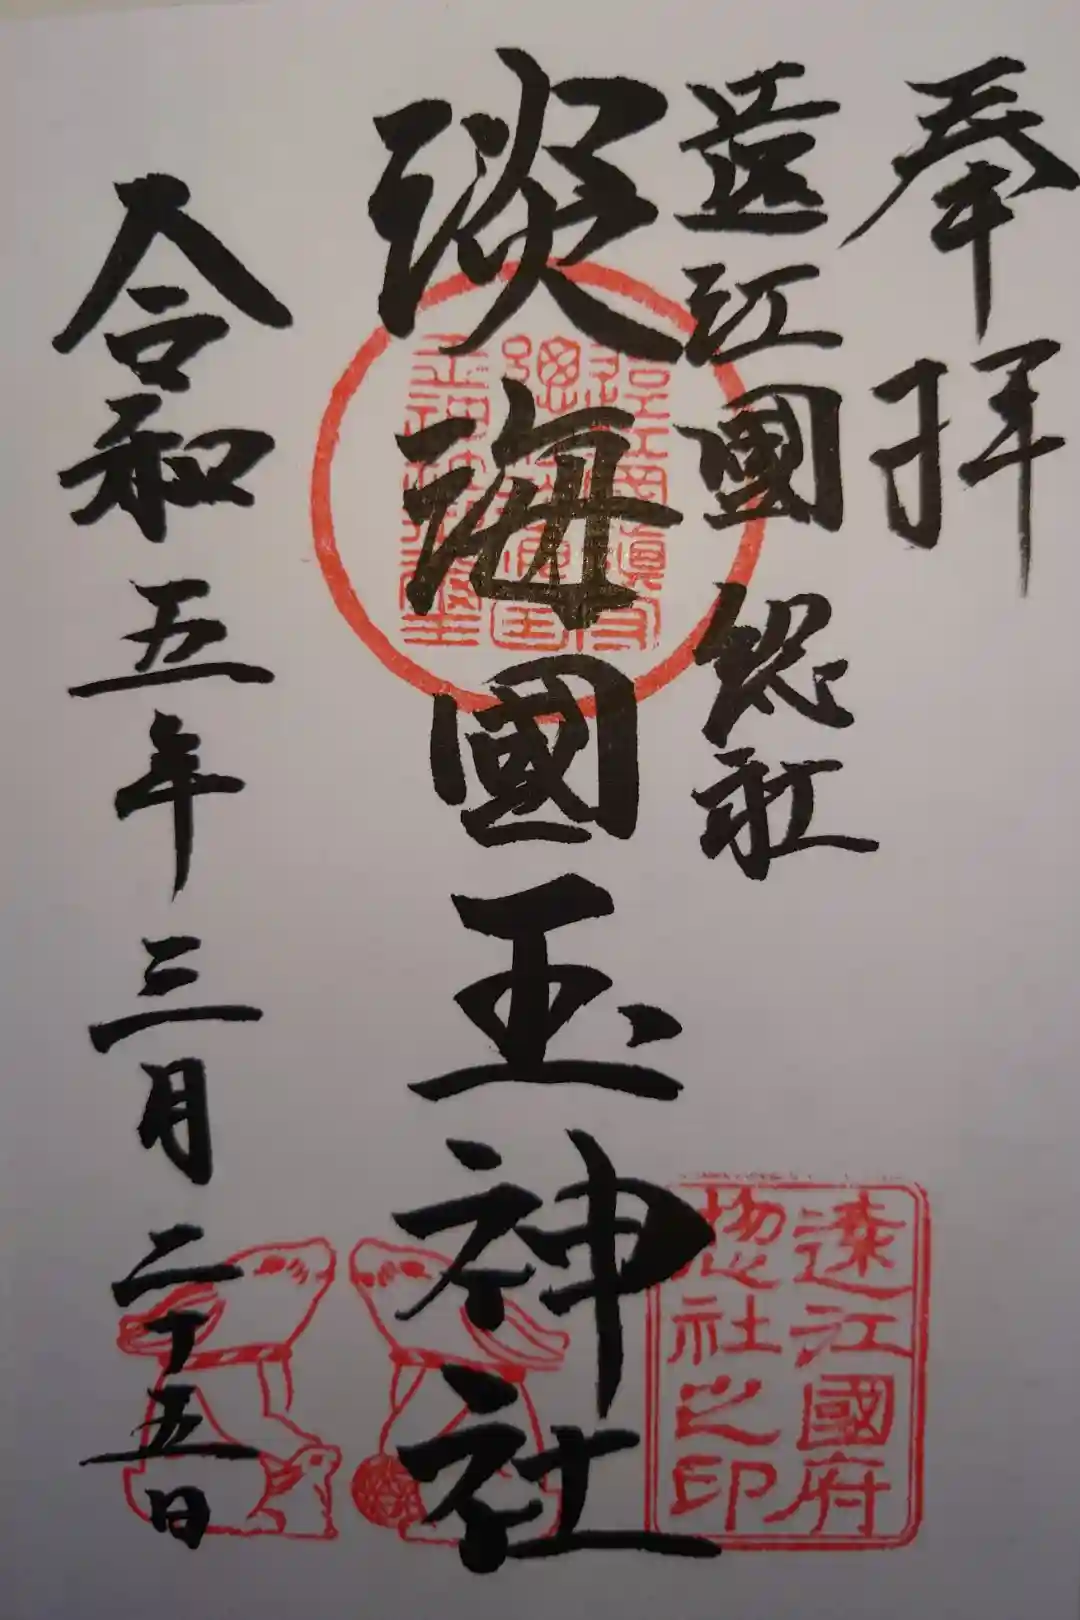 奉拝
遠江國 総社
淡海國玉神社
令和五年三月二十五日
遠江國府
惣社之印